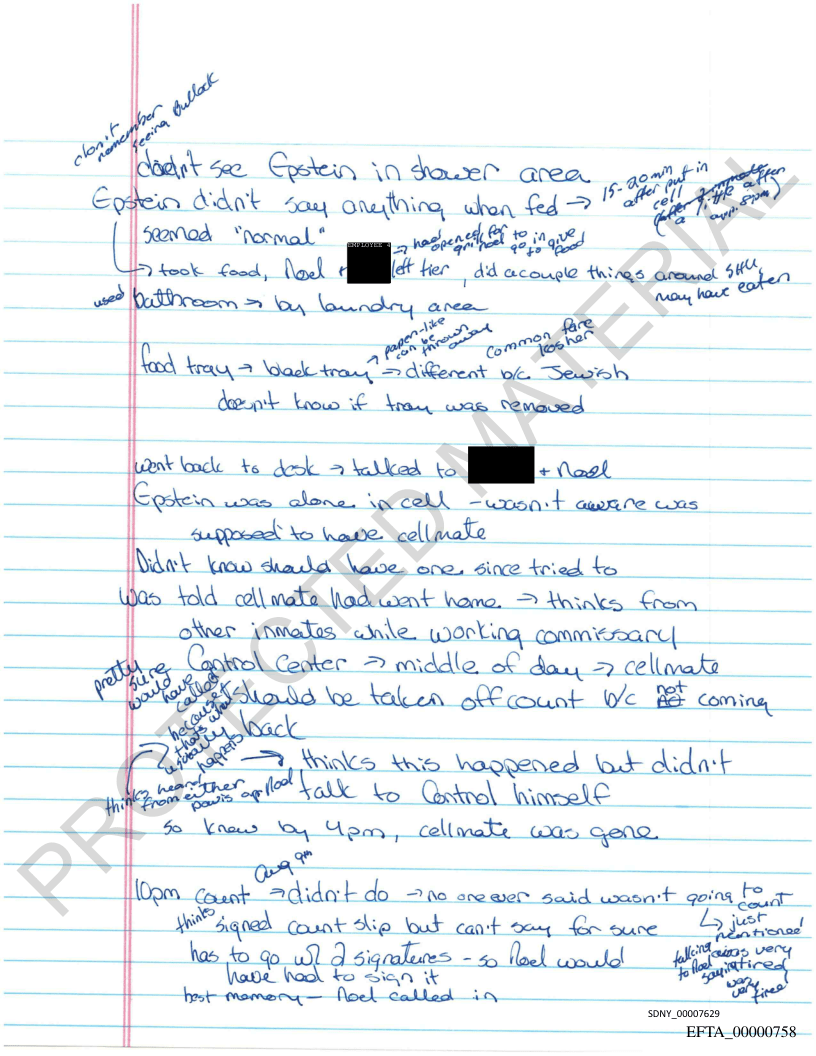 don't remember seeing Bullock
doesn't see Epstein in shower area
Epstein didn't say anything when fed → 15-20 min after put in cell
a little after
seemed "normal"
EMPLOYEE 4
→ had opened for
go in give food
→ took food, Noel +
left tier, did a couple things around SHU,
may have eaten
used bathroom → by laundry area
→ paper-like can be thrown away
Common fare kosher
food tray → black tray → different b/c Jewish
doesn't know if tray was removed
went back to desk → talked to
+ Noel
Epstein was alone in cell - wasn't aware was
supposed to have cellmate
Didn't know should have one since tried to
was told cellmate had went home → thinks from
other inmates while working commissary
pretty sure would have called because that's what usually happens
Control Center → middle of day → cellmate
should be taken off count b/c not coming
back
→ thinks this happened but didn't
talk to Control himself
thinks heard from either
Noel
so knew by 4pm, cellmate was gone
Aug 9th
10pm count → didn't do → no one ever said wasn't going to count
↳ just mentioned
being very tired
talking to Noel saying
was very tired
thinks signed count slip but can't say for sure
has to go w/ 2 signatures - so Noel would
have had to sign it
best memory - Noel called in
PROTECTED MATERIAL
SDNY_00007629
EFTA_00000758